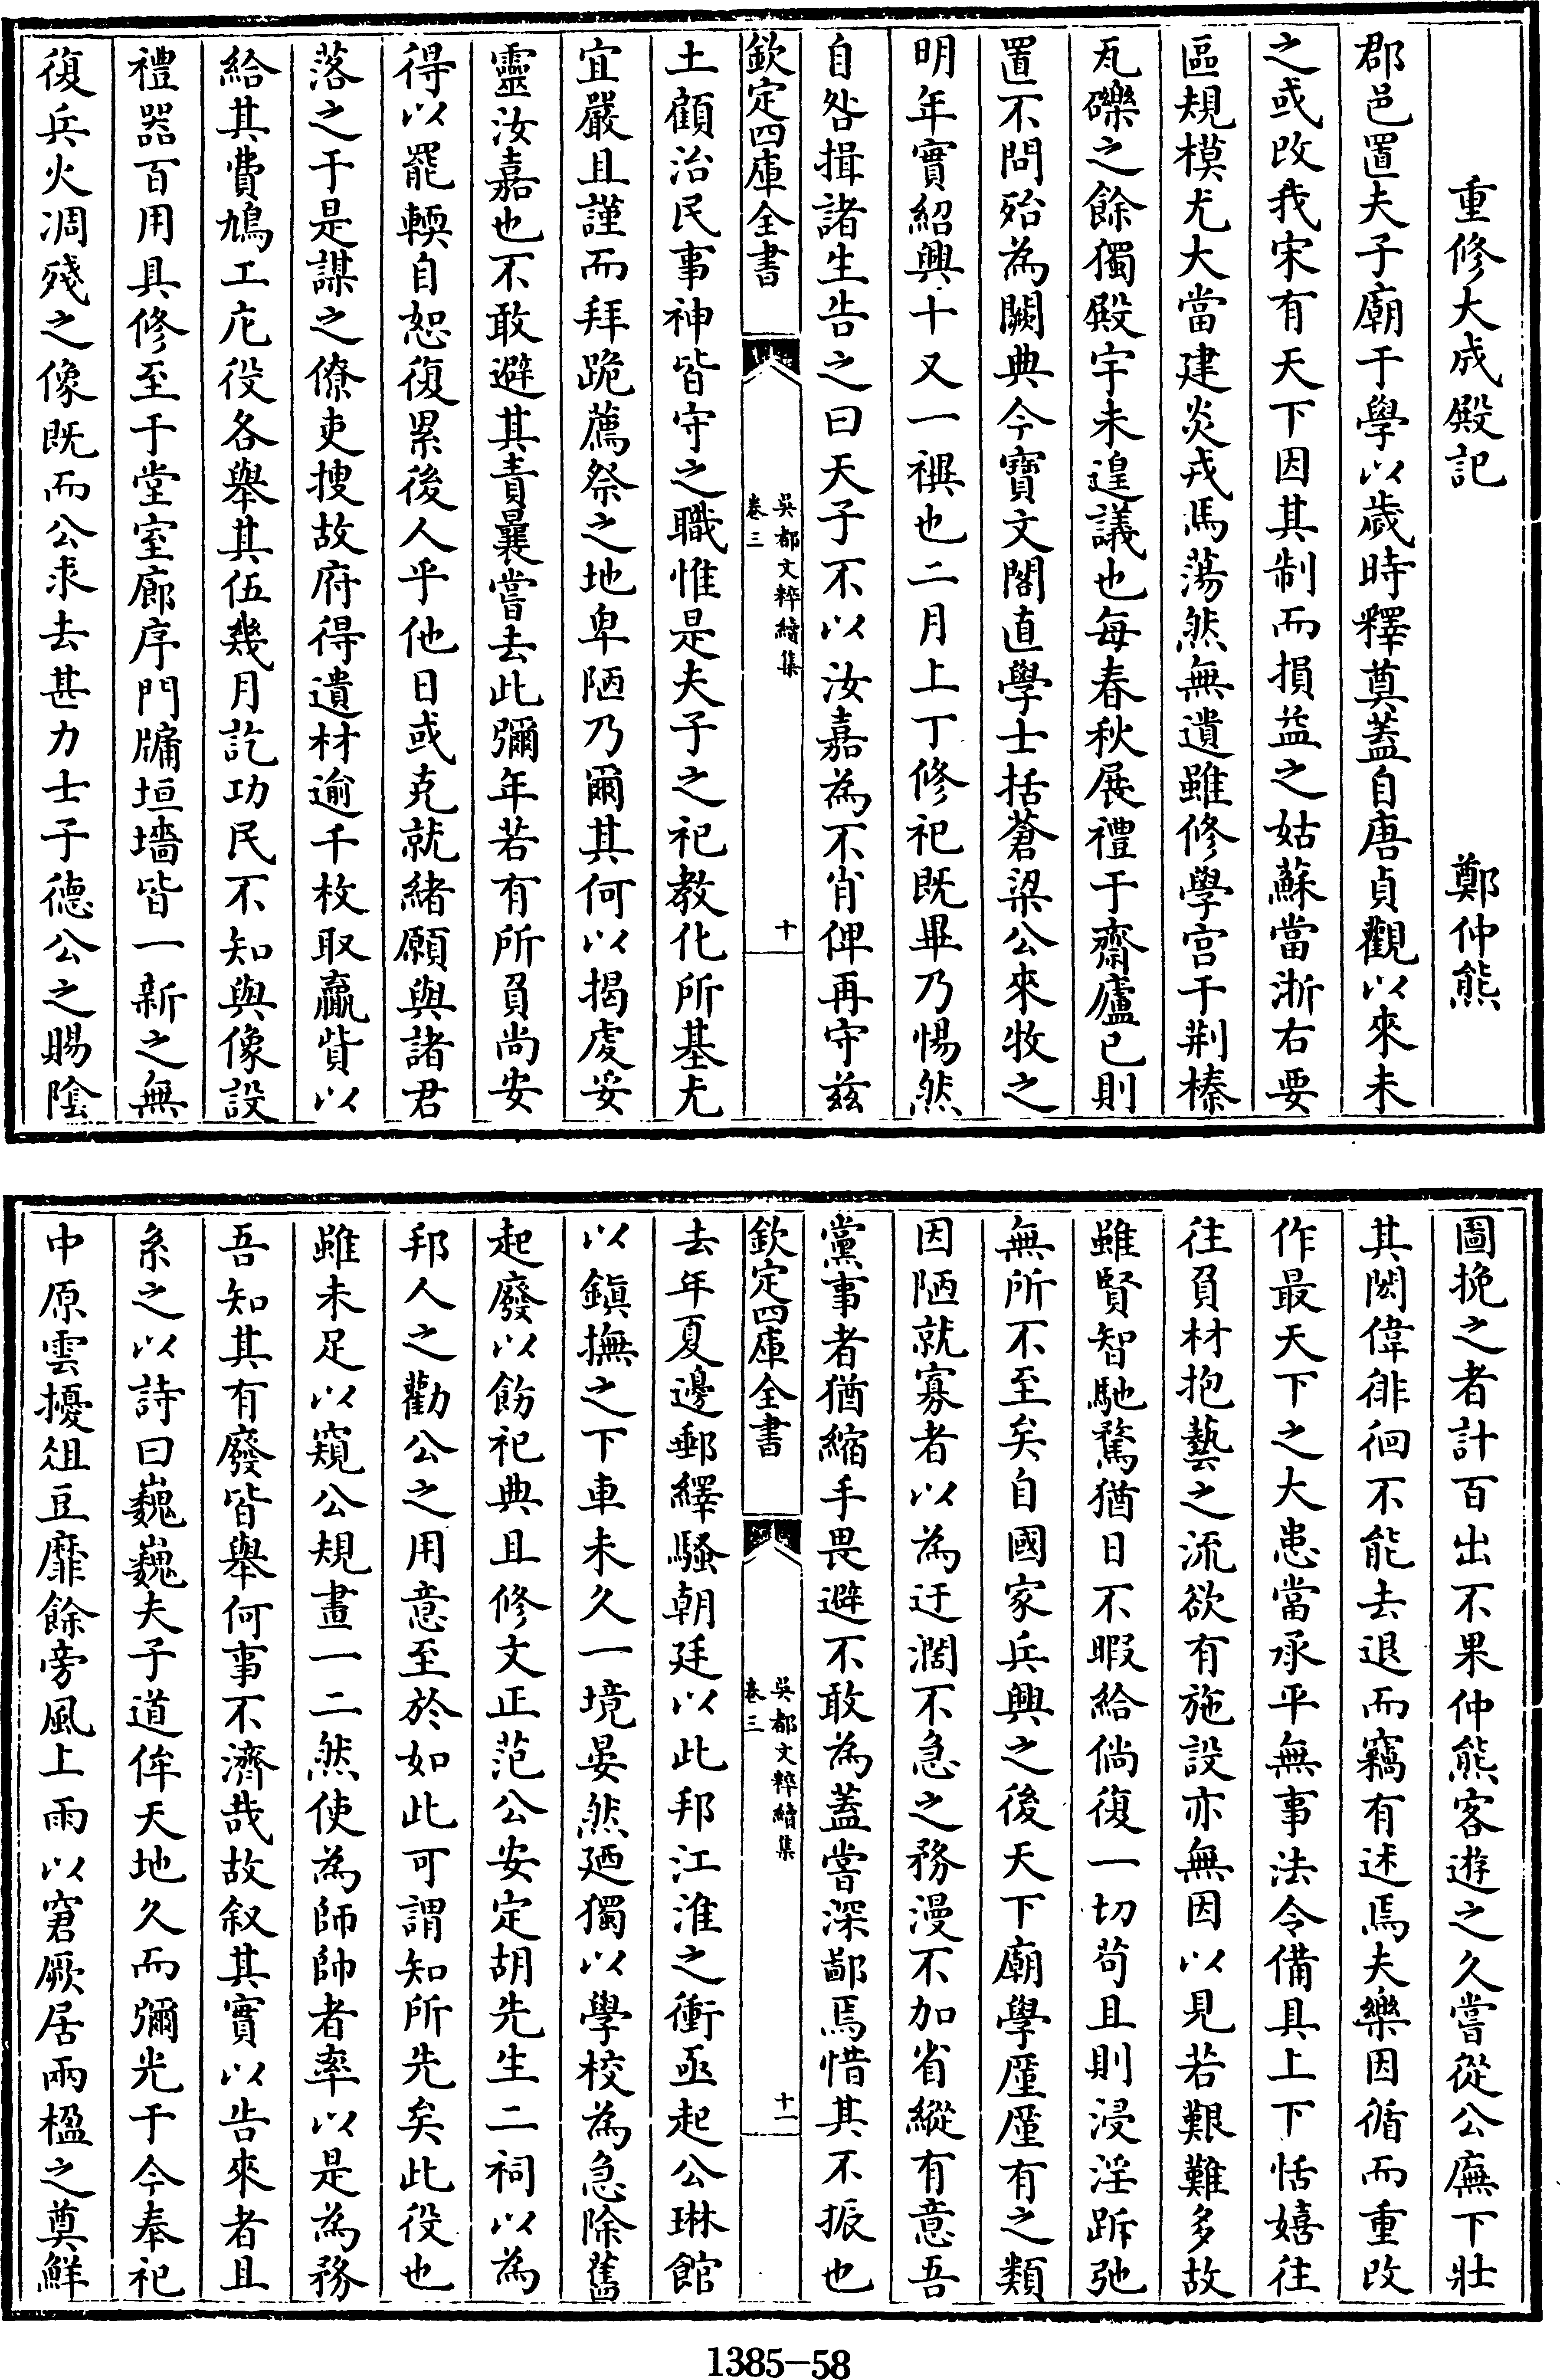 重修大成殿記　鄭仲熊
郡邑置夫子廟于學以歲時釋奠蓋自唐貞觀以來未
之或改我宋有天下因其制而損益之姑蘇當浙右要
區規模尤大當建炎戎馬蕩然無遺雖修學宫于荆榛
瓦礫之餘獨殿宇未遑議也每春秋展禮于齋廬已則
置不問殆為闕典今寶文閣直學士括蒼梁公來牧之
明年實紹興十又一禩也二月上丁修祀既畢乃惕然
自咎揖諸生告之曰天子不以汝嘉為不肖俾再守茲
欽定四庫全書
吳都文粹續集
卷三
十
土顧治民事神皆守之職惟是夫子之祀教化所基尤
宜嚴且謹而拜跪薦祭之地卑陋乃爾其何以揭虔妥
靈汝嘉也不敢避其責曩嘗去此彌年若有所負尚安
得以罷輭自恕復累後人乎他日或克就緒願與諸君
落之于是謀之僚吏搜故府得遺材逾千枚取羸貲以
給其費鳩工庀役各舉其伍幾月訖功民不知與像設
禮器百用具修至于堂室廊序門牖垣墻皆一新之無
復兵火凋殘之像既而公求去甚力士子德公之賜陰
圖挽之者計百出不果仲熊客遊之久嘗從公廡下壯
其閎偉徘徊不能去退而竊有述焉夫樂因循而重改
作最天下之大患當承平無事法令備具上下恬嬉往
往負材抱藝之流欲有施設亦無因以見若艱難多故
雖賢智馳騖猶日不暇給倘復一切苟且則浸淫跅弛
無所不至矣自國家兵興之後天下廟學廑廑有之類
因陋就寡者以為迂濶不急之務漫不加省縱有意吾
黨事者猶縮手畏避不敢為蓋嘗深鄙焉惜其不振也
欽定四庫全書
吳都文粹續集
卷三
十一
去年夏邊郵繹騷朝廷以此邦江淮之衝亟起公琳館
以鎮撫之下車未久一境晏然廼獨以學校為急除舊
起廢以飭祀典且修文正范公安定胡先生二祠以為
邦人之勸公之用意至於如此可謂知所先矣此役也
雖未足以窺公規畫一二然使為師帥者率以是為務
吾知其有廢皆舉何事不濟哉故叙其實以告來者且
系之以詩曰巍巍夫子道侔天地久而彌光于今奉祀
中原雲擾俎豆靡餘旁風上雨以窘厥居兩楹之奠鮮
1385-58